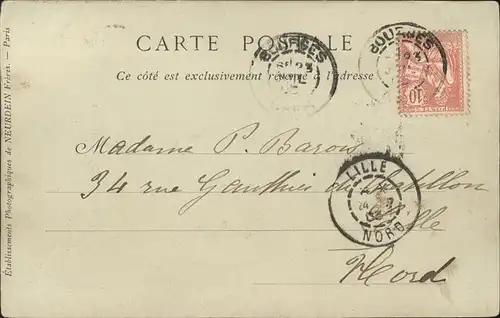 CARTE POSTALE
Ce côté est exclusivement réservé à l'adresse
BOURGES
BOURGES
10
Madame P. Barois
LILLE
NORD
34 rue Gauthier de Chatillon
Lille
Nord
Établissements Photographiques de NEURDEIN Frères. — Paris